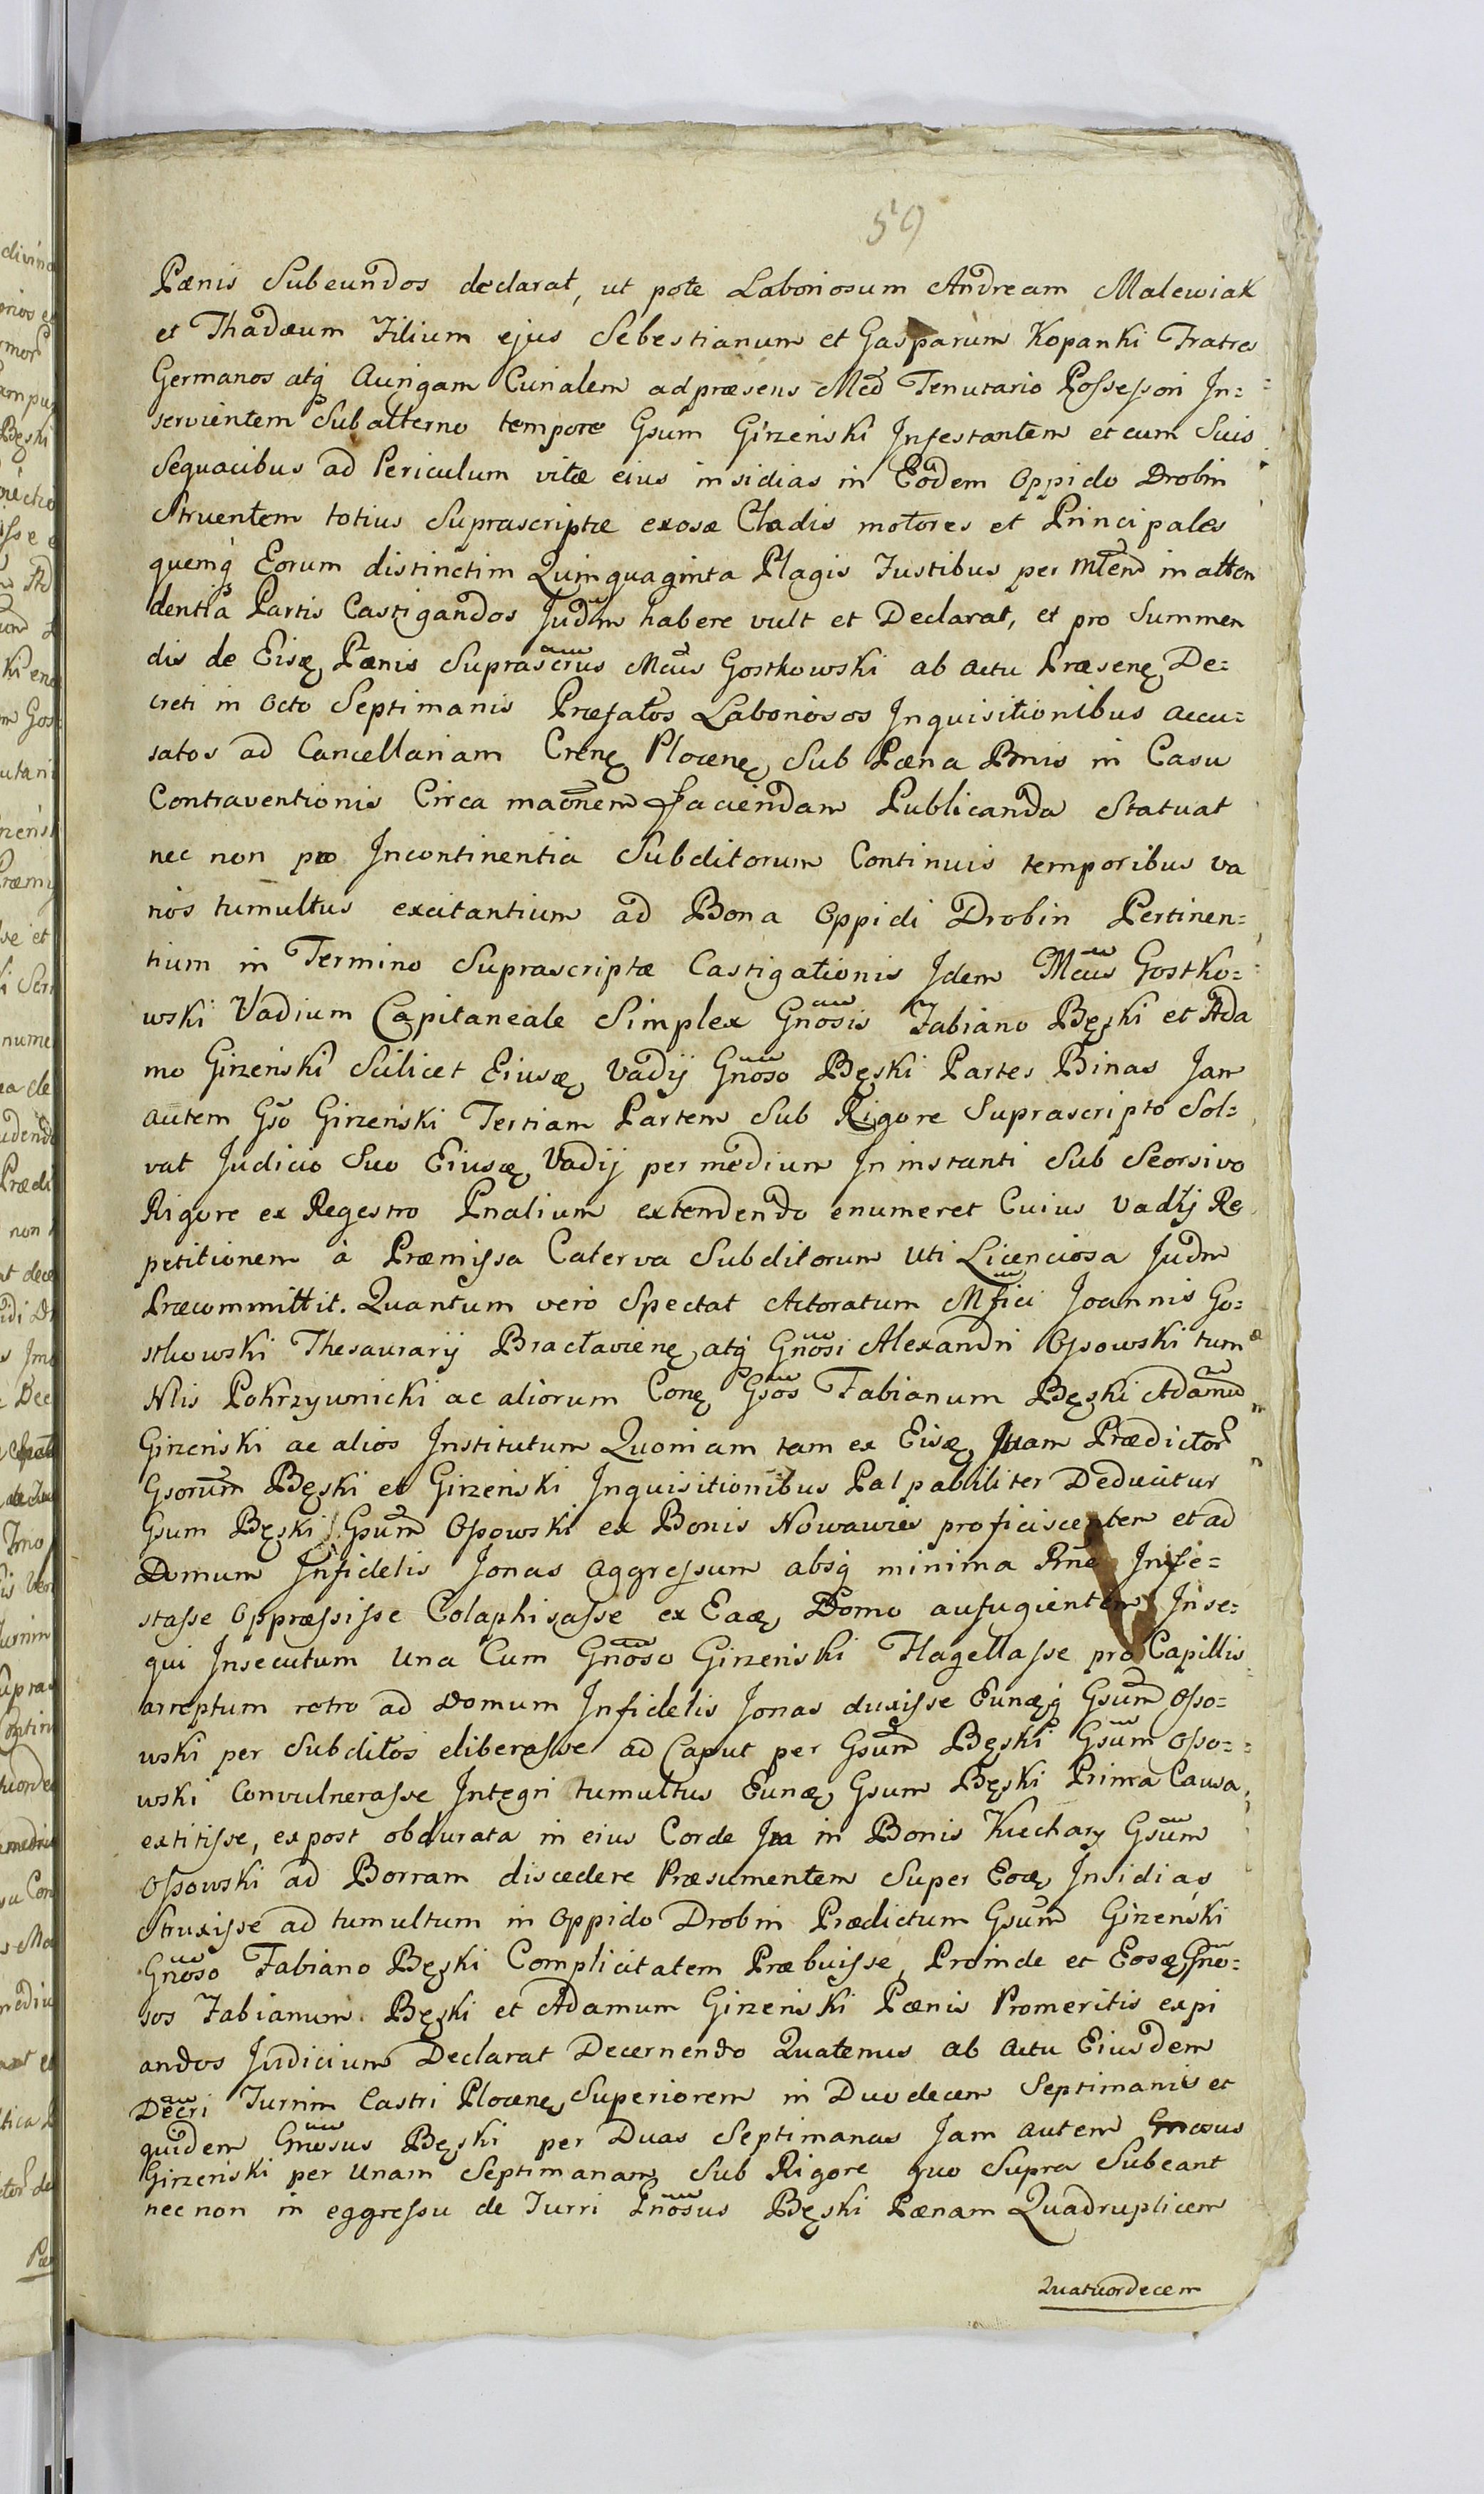 59
Pœnis Subeundos declarat, ut pote Laboriosum Andream Malewiak
et Thadœum Filium ejus Sebestianum et Gasparum Kopanki Fratres
Germanos atq̃ Aurigam Curialem ad præsens Mcö Tenutario Possessori In=
servientem Subalterno tempore Gsum Girzeński Infestantem et cum Suis
Sequacibus ad Periculum vitæ eius insidias in Eodem Oppido Drobin
Struentem totius Suprascriptæ exosæ Cladis motores et Principales
quemq̃ Eorum distinctim Quinquaginta Plagis Fustibus per in atten
dentia Partis Castigandos Judm̃ habere vult et Declarat, et pro Summen
dis de Eisę Pœnis Suprascr̃us Mcũs Gostkowski ab actu Præsenę De=
creti in Octo Septimanis Præfatos Laboriosos Inquisitionibus accu=
satos ad Cancellariam Crenę Plocenę Sub Pœna Pmis in Casu
Contraventionis Circa maõnem Faciendam Publicanda Statuat
nec non pro Incontinentia Subditorum Continuis temporibus va
rios tumultus excitantium ad Bona Oppidi Drobin Pertinen=
tium in Termino Suprascriptæ Castigationis Idem Mcũs Gostko=
wski Vadium Capitaneale Simplex Gnõsis Fabiano Bęski et Ada
mo Girzeński Scilicet Eiusę Vadij Gnõso Bęski Partes Binas Jam
autem Gsõ Girzeński Tertiam Partem Sub Rigore Suprascripto Sol=
vat Judicio Suo Eiusę Vadij per medium In instanti Sub Seorsivo
Rigore ex Regestro Pnalium extendendo enumeret Cuius Vadij Re
petitionem à Præmissa Caterva Subditorum uti Licenciosa Judm̃
Præcommittit. Quantum vero Spectat Actoratum Mfici Joannis Go=
stkowski Thesaurarij Bractavienę atq̃ Gnõsi Alexandri Ossowski tum
Nlis Pokrzywnicki ac aliorum Conę Gsõs Fabianum Bęski Adamũ
Girzeński ac alios Institutum Quoniam tam ex Eisę quam Prædictor̃
Gsorum̃ Bęski et Girzeński Inquisitionibus Palpabiliter Deducitur
Gsum Bęski Gsum̃ Ossowski ex Bonis Nowawies proficiscenten et ad
Domum Infidelis Jonas aggressum absq̃ minima Rñe Infe=
stasse Oppræssisse Colaphisasse ex Eaę Domo aufugientem Inse=
qui Insecutum una Cum Gnõso Girzeński Flagellasse pro Capillis
arreptum retro ad Domum Infidelis Jonas duxisse Eunęq̃ Gsum̃ Osso=
wski per Subditos eliberasse ad Caput per Gsum̃ Bęski Gsum̃ Osso=
wski Convulnerasse Integri tumultus Eunę Gsum Bęski Prima Causa
extitisse, ex post obdurata in eius Corde Ira in Bonis Kuchary Gsum̃
Ossowski ad Borram discedere Præsumentem Super Eoę Insidias
Struxisse ad tumultum in Oppido Drobin Prædictum Gsum̃ Girzeński
Gnõso Fabiano Bęski Complicitatem Præbuisse, Proinde et Eosę Gnõ=
sos Fabianum Bęski et Adamum Girzeński Pœnis Promeritis expi
andos Judicium Declarat Decernendo Quatenus ab actu Eiusdem
Decr̃i Turrim Castri Plocenę Superiorem in Duodecem Septimanis et
quidem Gnõsus Bęski per Duas Septimanas Jam autem Gnosus
Girzeński per Unam Septimanam Sub Rigore quo Supra Subeant
nec non in eggressu de Turri Gnõsus Bęski Pœnam Quadruplicem
Quatuordecem